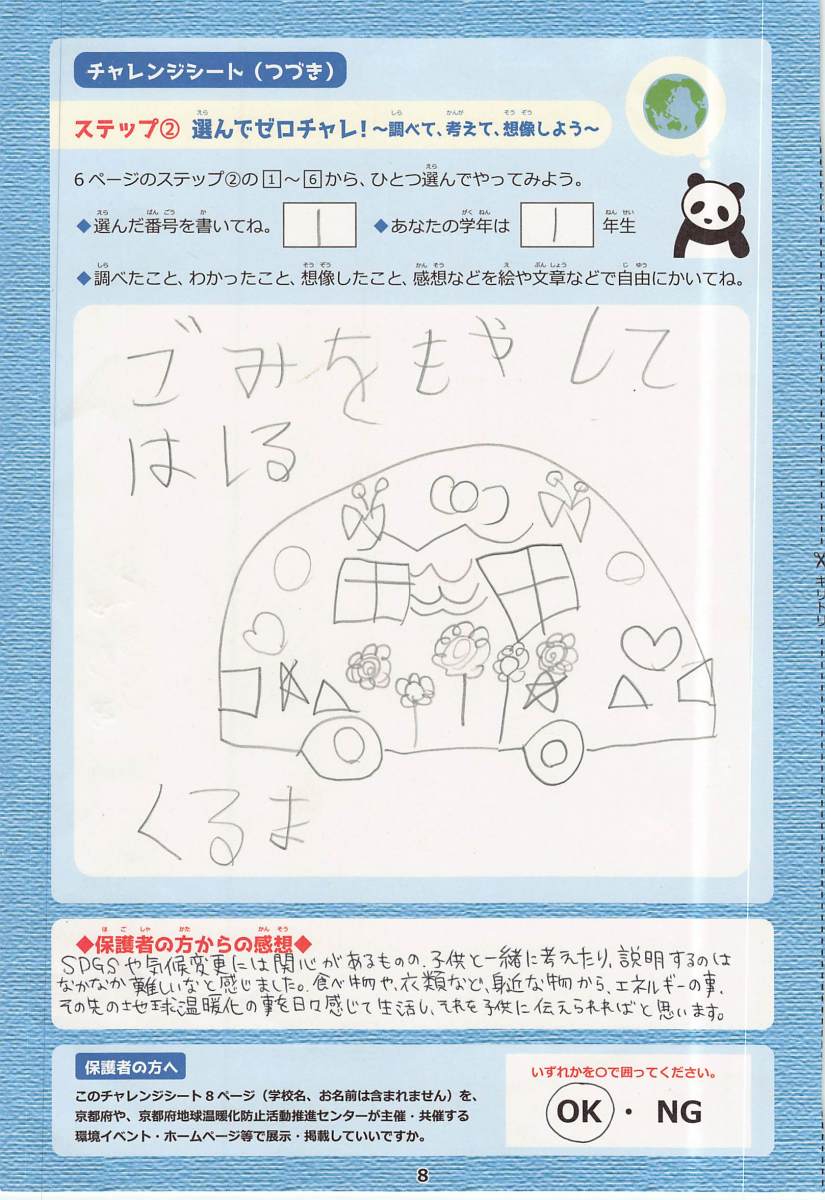 チャレンジシート（つづき）
ステップ② 選んでゼロチャレ！～調べて、考えて、想像しよう～
6ページのステップ②の1～6から、ひとつ選んでやってみよう。
◆選んだ番号を書いてね。 1 ◆あなたの学年は 1 年生
◆調べたこと、わかったこと、想像したこと、感想などを絵や文章などで自由にかいてね。
ごみをもやして
はしる
くるま
◆保護者の方からの感想◆
SDGSや気候変更には関心があるものの、子供と一緒に考えたり、説明するのは
なかなか難しいなと感じました。食べ物や、衣類など、身近な物から、エネルギーの事、
その先の地球温暖化の事を日々感じて生活し、それを子供に伝えられればと思います。
保護者の方へ
このチャレンジシート8ページ（学校名、お名前は含まれません）を、
京都府や、京都府地球温暖化防止活動推進センターが主催・共催する
環境イベント・ホームページ等で展示・掲載していいですか。
いずれかを〇で囲ってください。
OK ・ NG
8